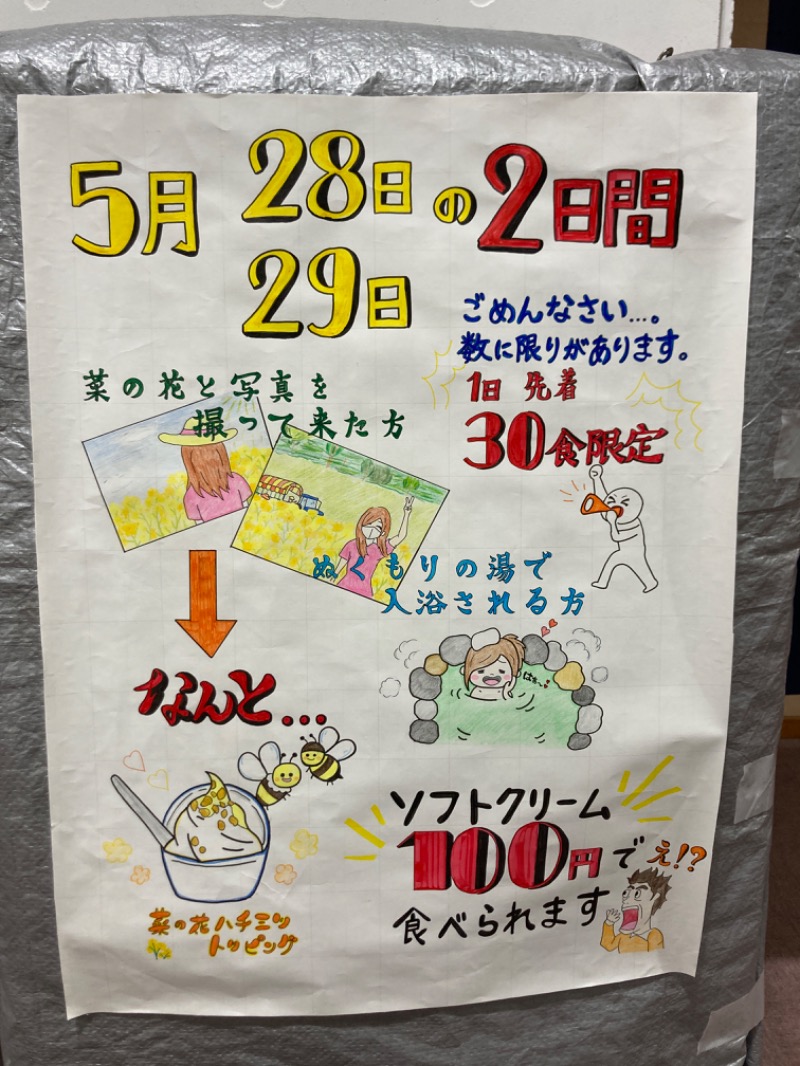 5月 28日の2日間
29日
ごめんなさい…。
数に限りがあります。
1日 先着
30食限定
菜の花と写真を
撮って来た方
ぬくもりの湯で
入浴される方
はぁ〜
なんと…
菜の花ハチミツ
トッピング
ソフトクリーム
100円で え!?
食べられます